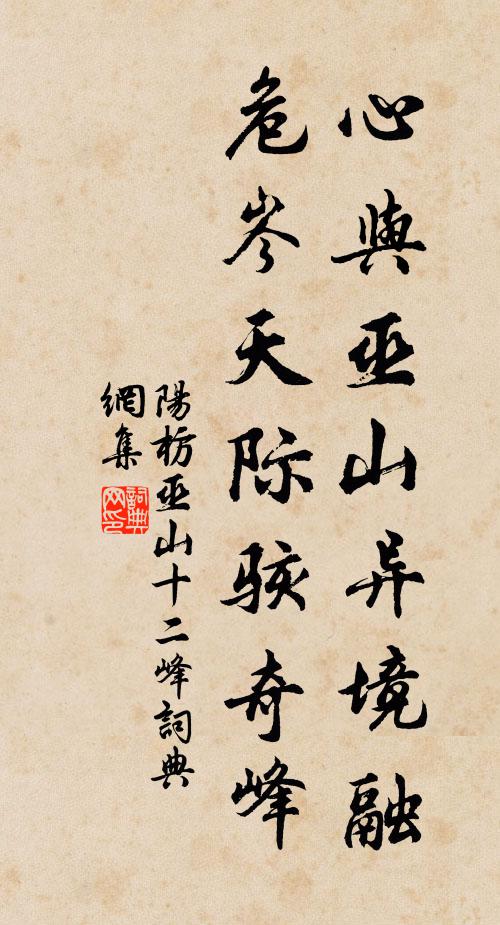 心與巫山异境融
危岑天际骇奇峰
陽枋巫山十二峰詞典
網集
詞典
网印